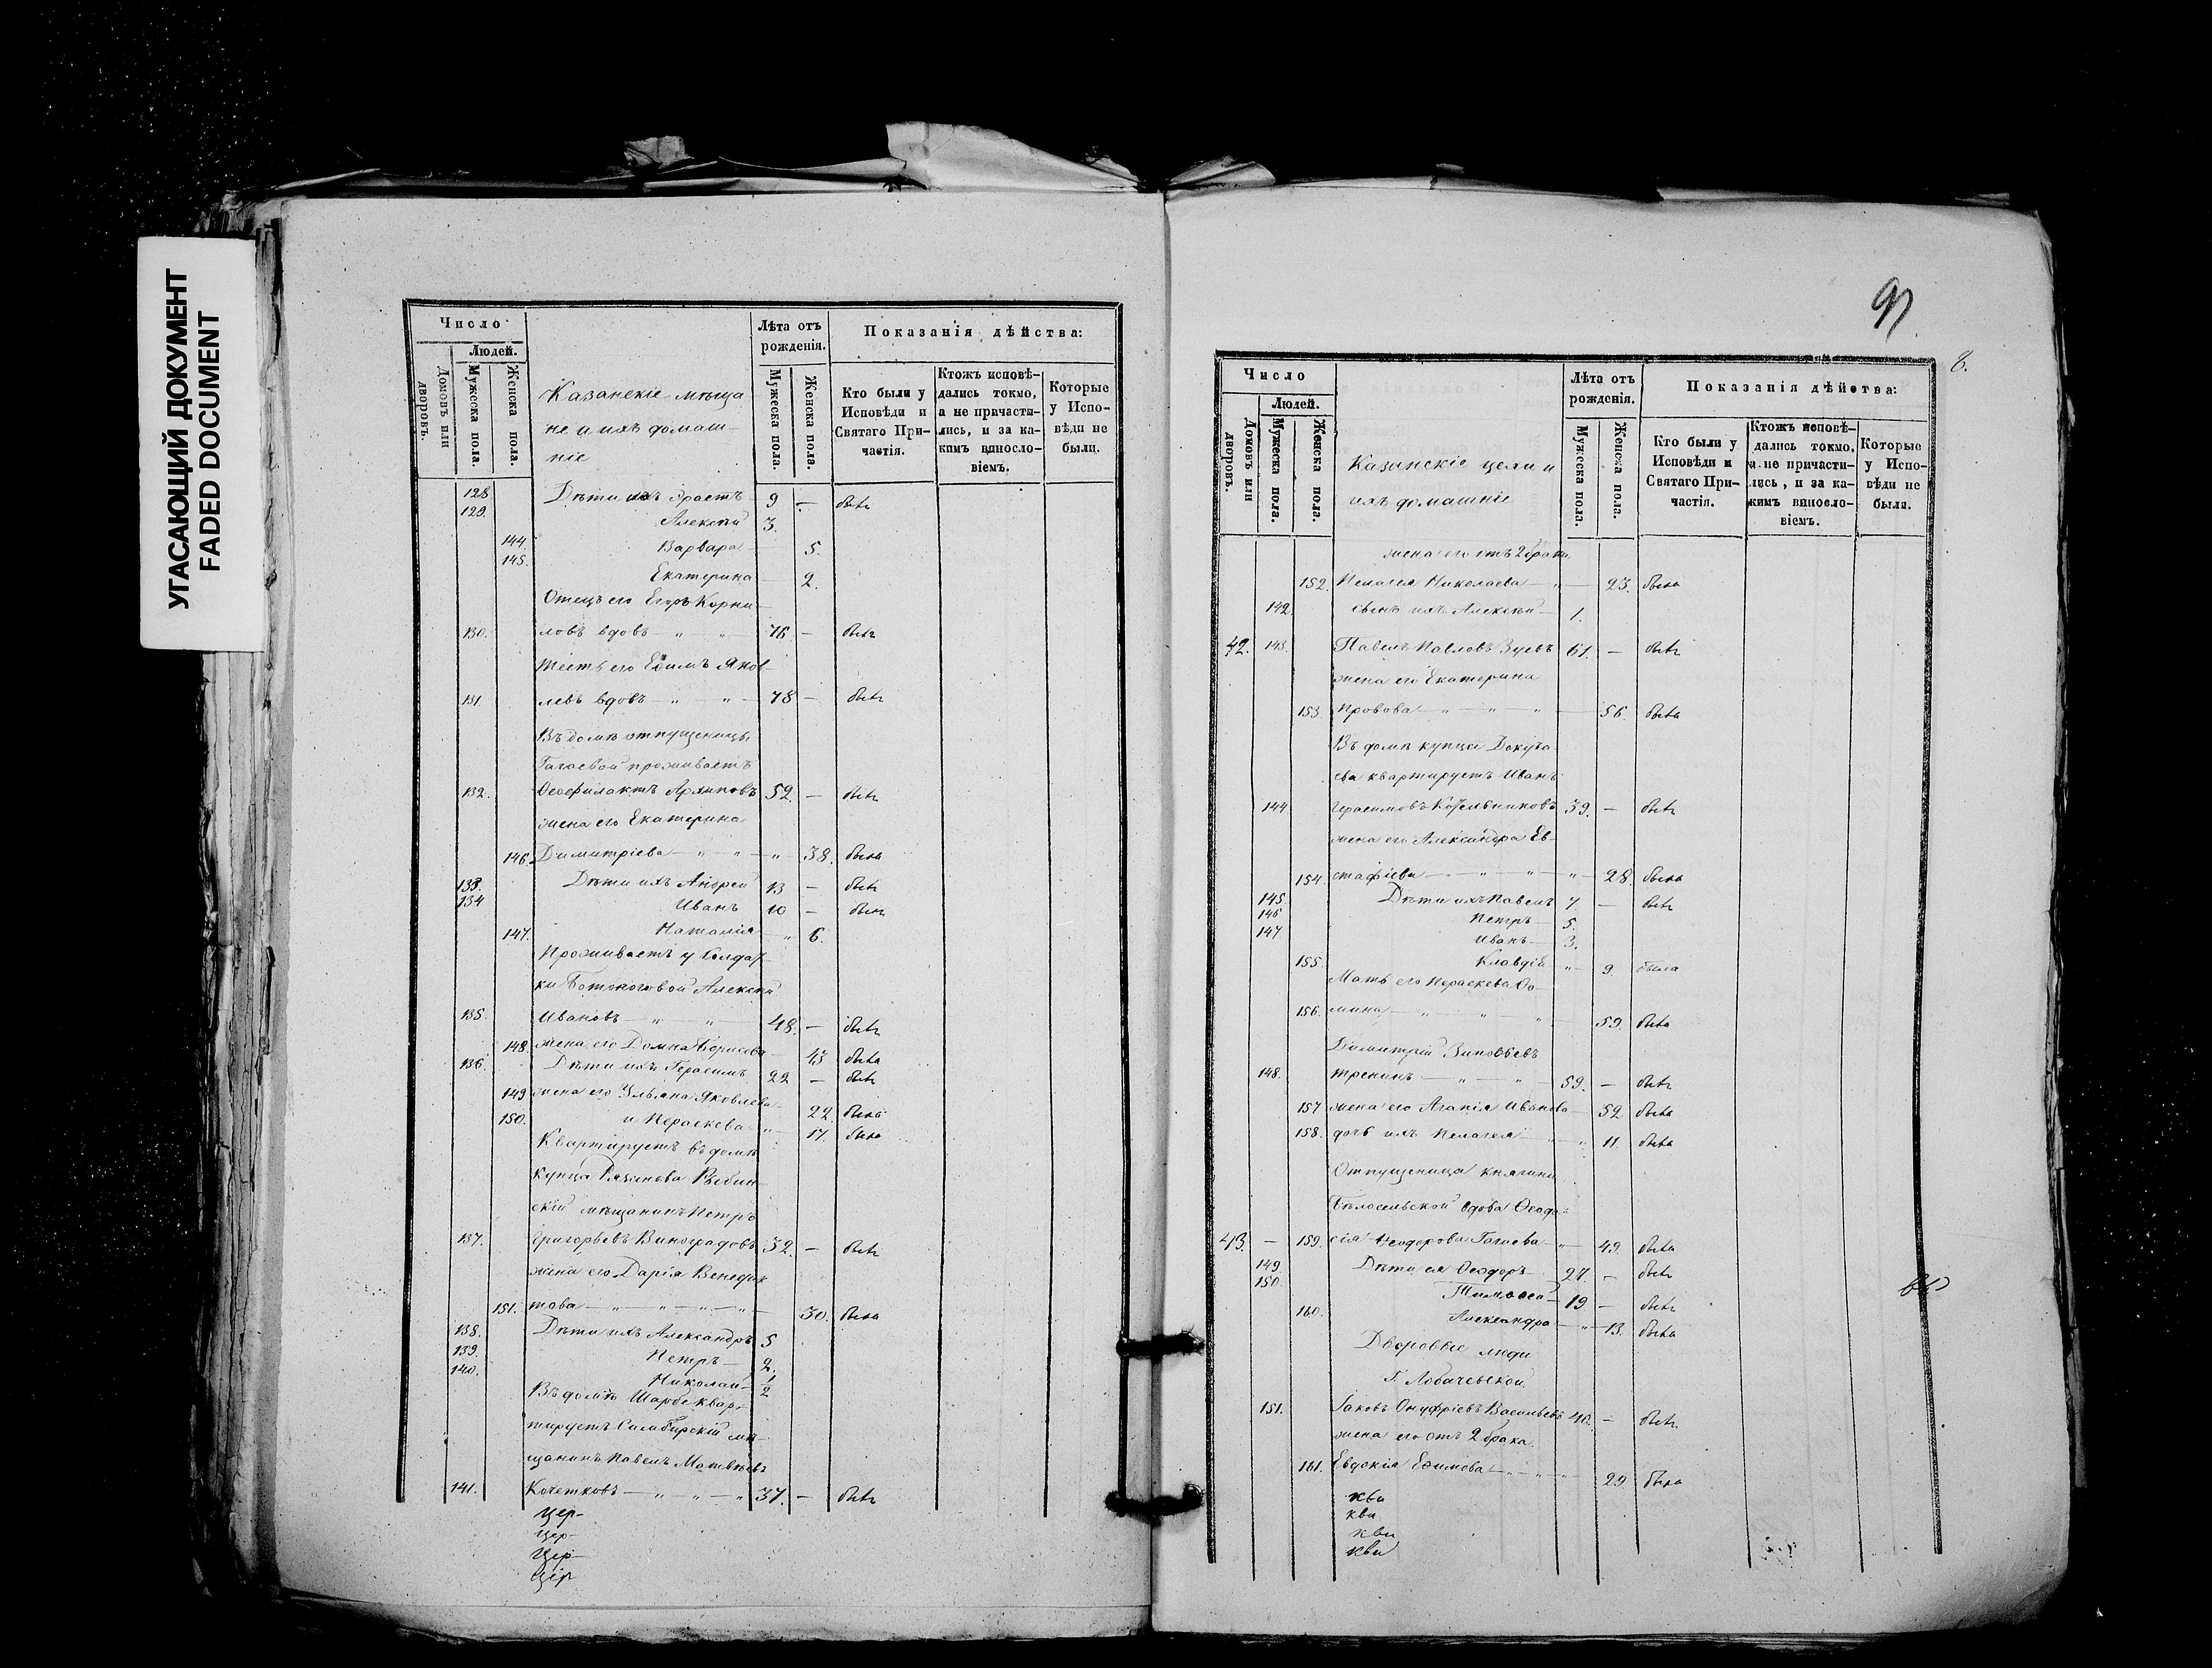 УГАСАЮЩИЙ ДОКУМЕНТ
FADED DOCUMENT
Число
Людей.
Домовъ или дворовъ.
Мужеска пола.
Женска пола.
Казанскіе мѣща
не и ихъ домаш-
ніе
Лѣта отъ рожденія.
Мужеска пола.
Женска пола.
Показанія дѣйства:
Кто были у Исповѣди и Святаго Причастія.
Ктожъ исповѣдались токмо, а не причастились, и за какимъ винословіемъ.
Которые у Исповѣди не были.
128 Дѣти ихъ Эрастъ 9 — былъ
129. Алексѣй 3.
144. Варвара 5.
145. Екатерина 2.
Отецъ его Егоръ Корни-
130. ловъ вдовъ — „ — „ 76 — былъ
Тесть его Ефимъ Яков
131. левъ вдовъ — „ — „ — 78 — былъ
Въ домѣ отпущеницы
Гагаевой проживаетъ
132. Ѳеофилактъ Архиповъ 52. — былъ
жена его Екатерина
146. Димитріева — „ — „ — „ 38. была
133. Дѣти ихъ Андрей 13 — былъ
134 Иванъ 10 — былъ
147. Наталія „ 6.
Проживаетъ у Солдат-
ки Алексѣй
135. Ивановъ — „ — „ — 48. — былъ
148. жена его Домна Борисова 43 была
136. Дѣти ихъ Герасимъ 22 — былъ
149 жена его Ульяна Яковлева 22 была
150. и Пераскева „ 17. была
Квартируетъ въ домѣ
купца Рыбин
скій мѣщанинъ Петръ
137. Григорьевъ Виноградовъ 32. — былъ
жена его Дарія Венедик
151. това — „ — „ — „ — „ — 30. была
138. Дѣти ихъ Александръ 5
139. Петръ — 2.
140. Николай — 1/2
Въ домѣ Шарбе кварт
тируетъ Симбирскій мѣ-
щанинъ Павелъ Матвѣевъ
141. Кочетковъ — „ „ — „ 37. — былъ
Цер-
Цер-
Цер-
Цер
97
8.
Число
Людей.
Домовъ или дворовъ.
Мужеска пола.
Женска пола.
Казанскіе цехи и
ихъ домашніе
Лѣта отъ рожденія.
Мужеска пола.
Женска пола.
Показанія дѣйства:
Кто были у Исповѣди и Святаго Причастія.
Ктожъ исповѣдались токмо, а не причастились, и за какимъ винословіемъ.
Которые у Исповѣди не были.
жена его отъ 2 брака
152. Пелагея Николаева — „ — 23. была
142. сынъ ихъ Алексѣй 1.
42. 143. Павелъ Павловъ Зуевъ 61. — былъ
жена его Екатерина
153. Провова — „ — „ — „ — 56. была
Въ домѣ купца Докуча
ева квартируетъ Иванъ
144. Герасимовъ Котельниковъ 39. — былъ
жена его Александра Ев-
154 стафіева — „ — „ — „ 28. была
145. Дѣти ихъ Павелъ 7. — былъ
146 Петръ — 5.
147 Иванъ — 3.
155 Клавдія „ 9. была
Мать его Пераскева Ѳо-
156. мина „ „ „ — 59. была
Димитрій Зиновьевъ
148. Тренинъ — „ — „ — 59. — былъ
157 жена его Агапія Иванова 52 была
158. дочь ихъ Пелагея — „ 11. была
Отпущеница княгини
Бѣлосельской вдова Ѳеодо-
43. — 159. сія Ѳеодорова Гагаева — „ — 49. была
149. Дѣти ея Ѳеодоръ 27. — былъ
150. Тимоѳей — 19 — былъ
160. Александра — „ — 13. была
Дворовые люди
Г. Лобачевской.
151. Іаковъ Онуфріевъ Васильевъ 40. — былъ
жена его отъ 2 брака.
161. Евдокія Ефимова — „ — „ — „ 29 была
кви
кви
кви
кви